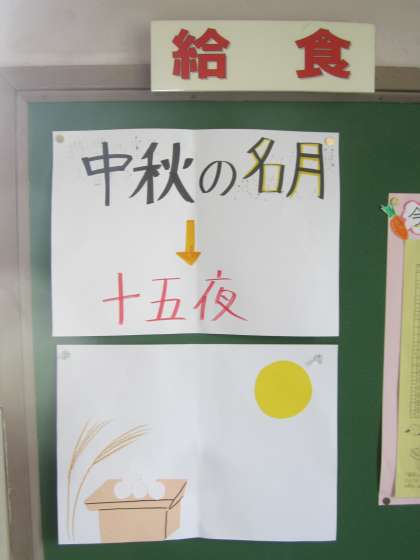 給 食
中秋の名月
十五夜
今